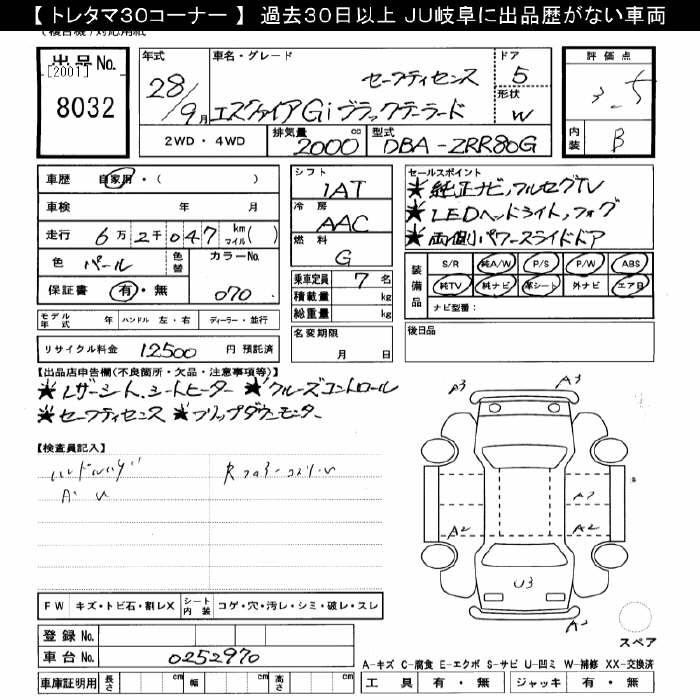 【 トレタマ30コーナー 】 過去30日以上 JU岐阜に出品歴がない車両
出品No.
[2001]
8032
年式
28/9月
車名・グレード
セーフティセンス
エスクァイアGiブラックテーラード
ドア
5
形状
W
評価点
3.5
内装
B
2WD・4WD
排気量
2000 cc
型式
DBA-ZRR80G
車歴
自家用・( )
車検 年 月
走行 6万2千047 km マイル( )
色 パール
色替
カラーNo.
070
保証書 有・無
シフト
1AT
冷房
AAC
燃料
G
乗車定員 7 名
積載量 kg
総重量 kg
名変期限
月 日
セールスポイント
★純正ナビ,フルセグTV
★LEDヘッドライト,フォグ
★両側パワースライドドア
装備品
S/R 純A/W P/S P/W ABS
純TV 純ナビ 革シート 外ナビ エアB
ナビ型番:
後日品
モデル年式 年 ハンドル 左・右 ディーラー・並行
リサイクル料金 12500 円 預託済
【出品店申告欄(不良箇所・欠品・注意事項等)】
★レザーシート,シートヒーター ★クルーズコントロール
★セーフティセンス ★フリップダウンモニター
【検査員記入】
A3
A3
A2
A2
U3
FW キズ・トビ石・割レX シート内装 コゲ・穴・汚レ・シミ・破レ・スレ
登録No.
車台No. 0252970
車庫証明用 長さ cm 幅 cm 高さ cm
スペア
A-キズ C-腐食 E-エクボ S-サビ U-凹ミ W-補修 XX-交換済
工具 有・無 ジャッキ 有・無